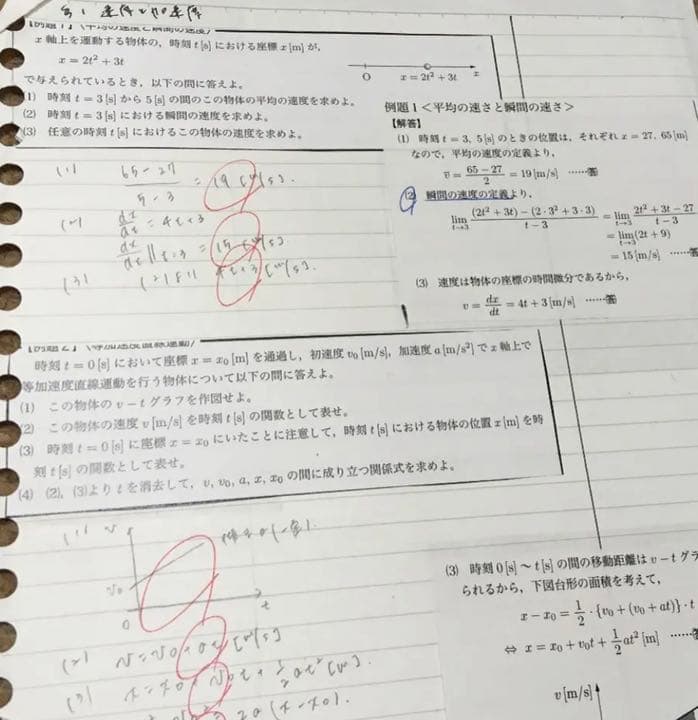 速度と加速度
【例題1】〈平均の速度と瞬間の速度〉
x 軸上を運動する物体の，時刻 t[s] における座標 x[m] が，
x = 2t² + 3t
O x = 2t² + 3t x
で与えられているとき，以下の問に答えよ。
(1) 時刻 t = 3[s] から 5[s] の間のこの物体の平均の速度を求めよ。
(2) 時刻 t = 3[s] における瞬間の速度を求めよ。
(3) 任意の時刻 t[s] におけるこの物体の速度を求めよ。
(1) (65-27)/(5-3) = 19 [m/s].
(2) dx/dt = 4t+3
dx/dt||t=3 = 15 [m/s]
(3) (2)より 4t+3 [m/s].
例題1＜平均の速さと瞬間の速さ＞
【解答】
(1) 時刻 t = 3, 5[s] のときの位置は，それぞれ x = 27, 65[m]
なので，平均の速度の定義より，
v̄ = (65-27)/2 = 19[m/s] ……答
(2) 瞬間の速度の定義より，
lim t→3 ((2t² + 3t) − (2·3² + 3·3))/(t − 3) = lim t→3 (2t² + 3t − 27)/(t − 3)
= lim t→3 (2t + 9)
= 15[m/s] ……答
(3) 速度は物体の座標の時間微分であるから，
v = dx/dt = 4t + 3[m/s] ……答
【例題2】〈等加速度直線運動〉
時刻 t = 0[s] において座標 x = x₀[m] を通過し，初速度 v₀[m/s]，加速度 a[m/s²] で x 軸上で
等加速度直線運動を行う物体について以下の問に答えよ。
(1) この物体の v－t グラフを作図せよ。
(2) この物体の速度 v[m/s] を時刻 t[s] の関数として表せ。
(3) 時刻 t = 0[s] に座標 x = x₀ にいたことに注意して，時刻 t[s] における物体の位置 x[m] を時
刻 t[s] の関数として表せ。
(4) (2), (3)より t を消去して，v, v₀, a, x, x₀ の間に成り立つ関係式を求めよ。
(1) v
v₀
O t
(2) v = v₀ + at [m/s]
(3) x = x₀ + v₀t + ½at² [m].
2a(x-x₀).
(3) 時刻 0[s] 〜 t[s] の間の移動距離は v－t グラ
られるから，下図台形の面積を考えて，
x − x₀ = ½·{v₀ + (v₀ + at)}·t
⇔ x = x₀ + v₀t + ½at² [m] ……答
v[m/s]